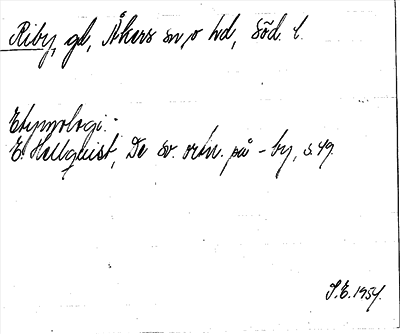 Riby, gd, Åkers sn o hd, Söd. l.
Etymologi:
E. Hellquist, De sv. ortn. på -by, s. 49.
S.E. 1954.